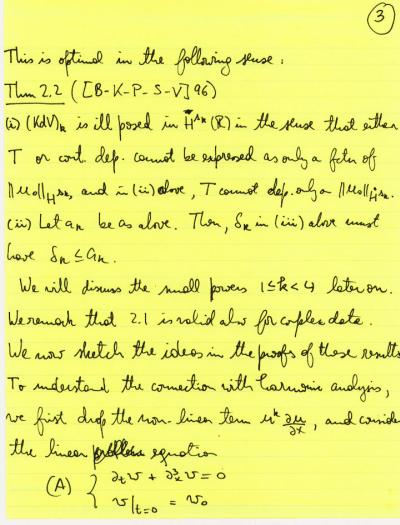 3
This is optimal in the following sense:
Thm 2.2 ([B-K-P-S-V] 96)
(i) (KdV)ₖ is ill posed in Ḣ^{sₖ}(ℝ) in the sense that either
T or cont. dep. cannot be expressed as only a fctn of
‖u₀‖_{Ḣ^{sₖ}}, and in (ii) above, T cannot dep. only on ‖u₀‖_{Ḣ^{sₖ}}.
(ii) Let aₖ be as above. Then, δₖ in (iii) above must
have δₖ ≤ aₖ.
We will discuss the small powers 1 ≤ k < 4 later on.
We remark that 2.1 is valid also for complex data.
We now sketch the ideas in the proofs of these results
To understand the connection with harmonic analysis,
we first drop the non-linear term uᵏ ∂u/∂x, and consider
the linear equation
(A) { ∂ₜv + ∂ₓ³v = 0
v|ₜ₌₀ = v₀